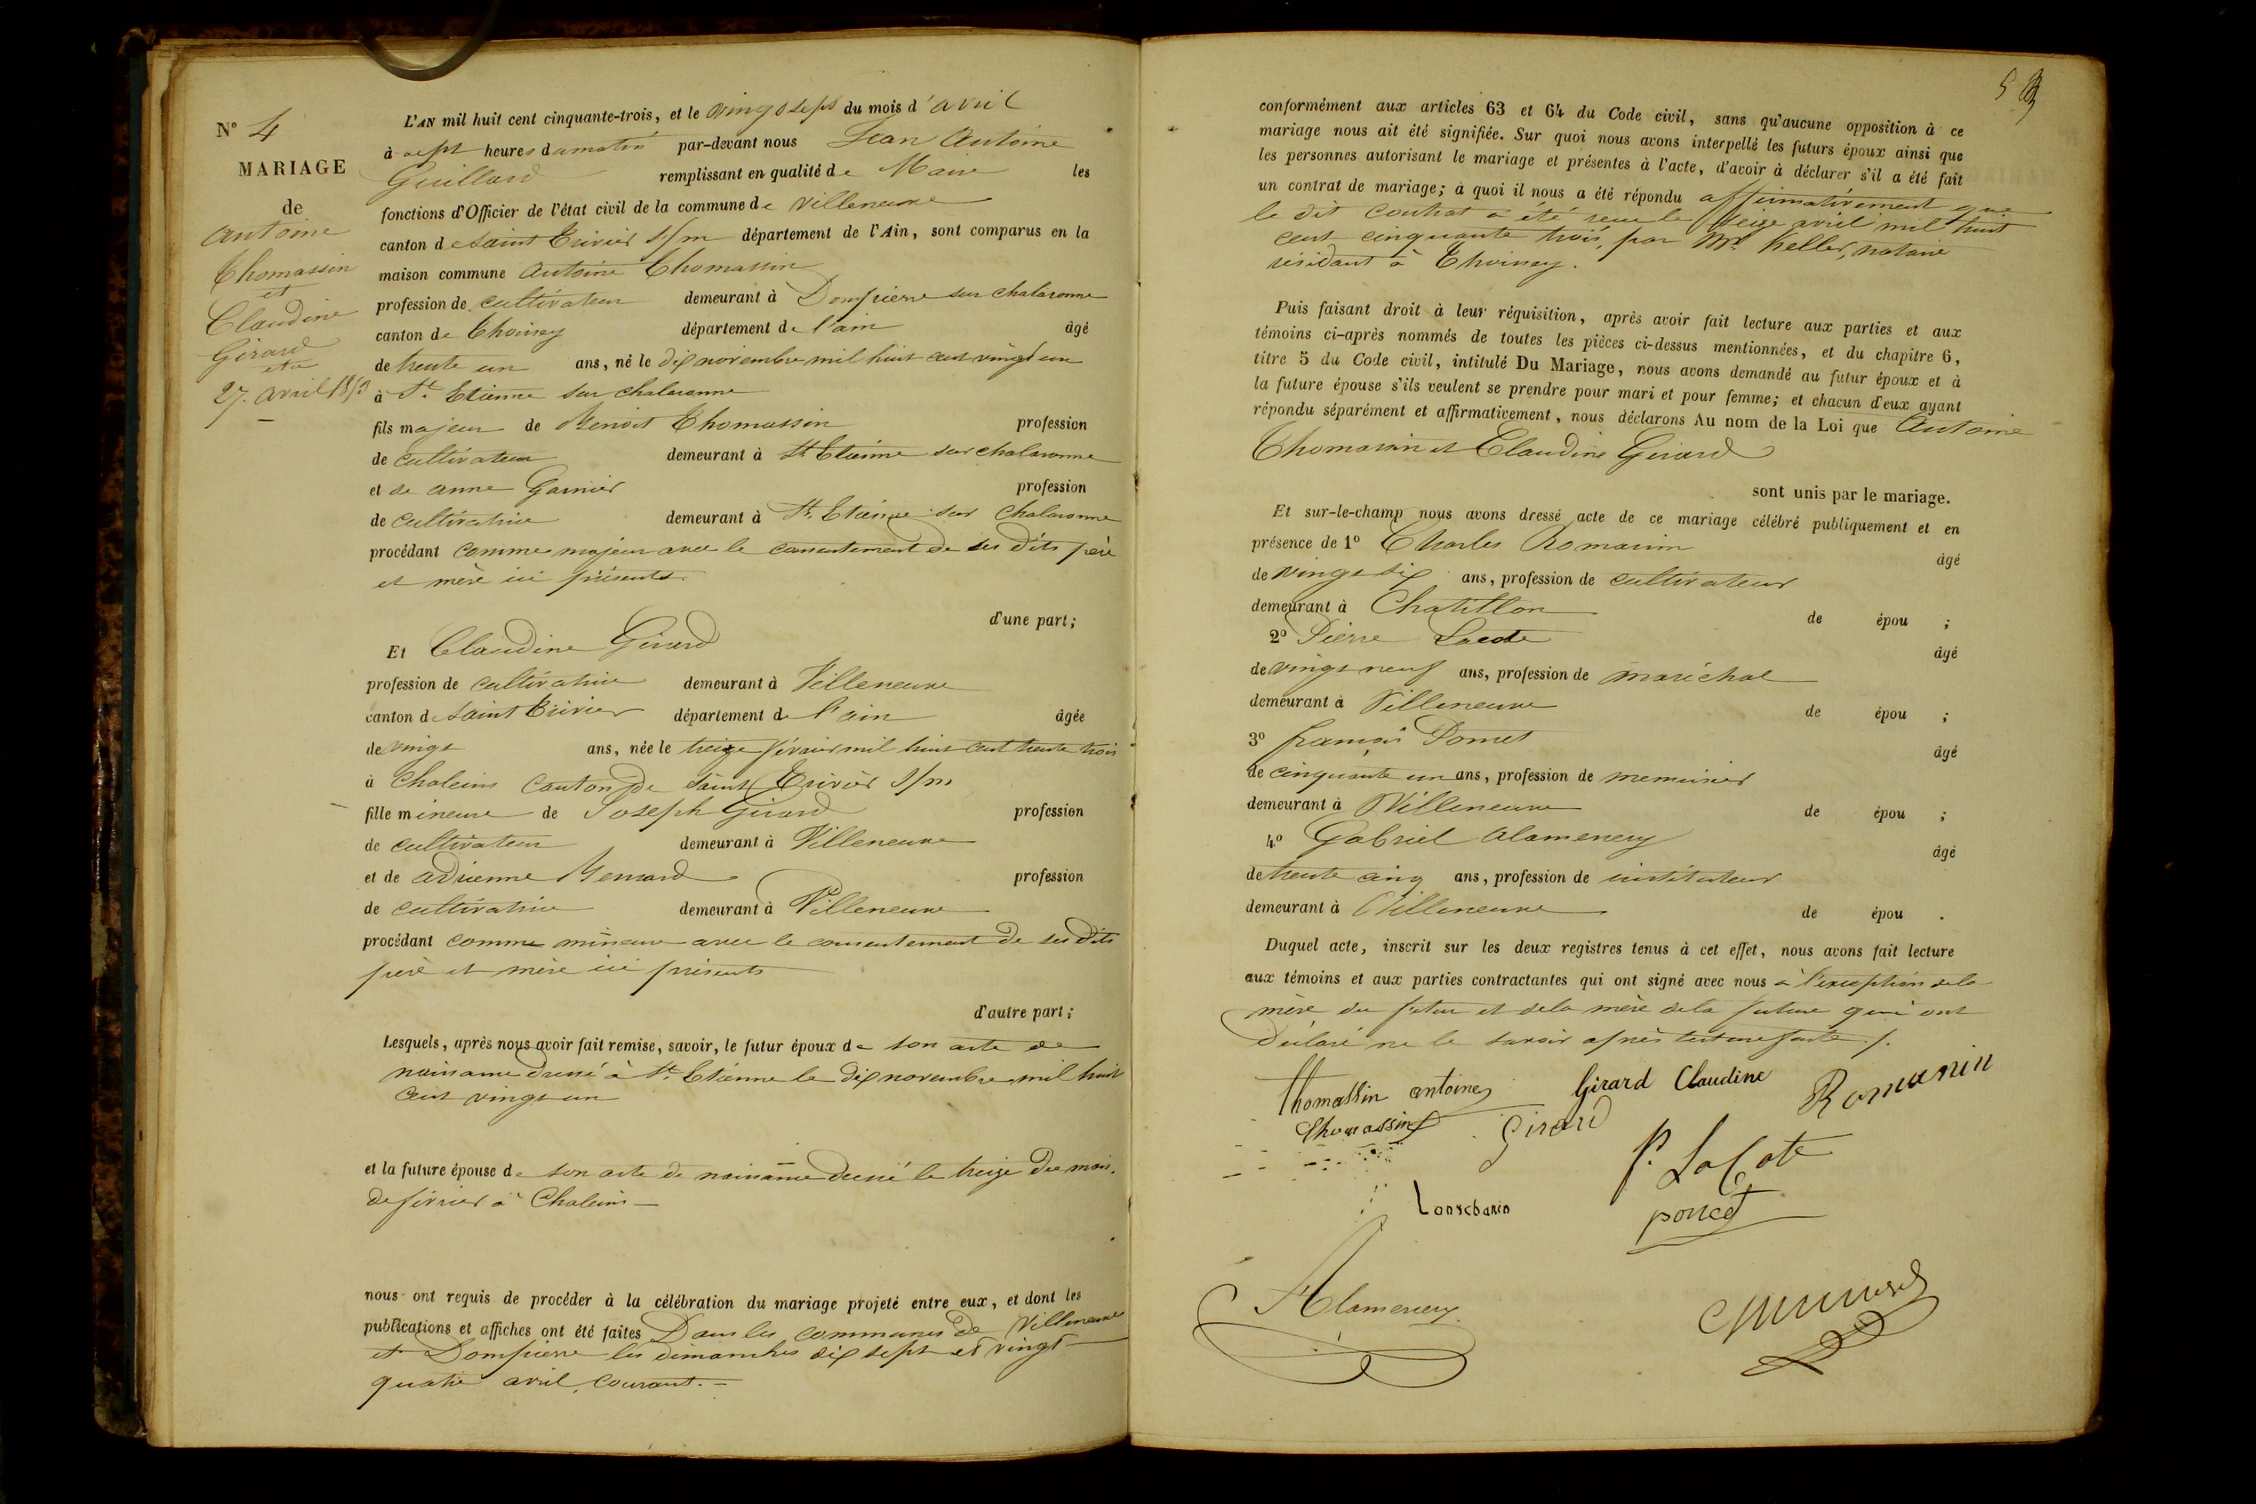 N° 4
MARIAGE
de
antoine
Thomassin
et
Claudine
Girard
27. avril 1853
L'AN mil huit cent cinquante-trois, et le vingt sept du mois d'avril
à sept heures du matin par-devant nous Jean Antoine
Guillard remplissant en qualité de Maire les
fonctions d'Officier de l'état civil de la commune de Villeneuve
canton de Saint Trivier s/m département de l'Ain, sont comparus en la
maison commune Antoine Thomassin
profession de cultivateur demeurant à Dompierre sur chalaronne
canton de Thoissey département de l'ain âgé
de trente un ans, né le dix novembre mil huit cent vingt un
à St. Etienne sur chalaronne
fils majeur de Benoit Thomassin profession
de cultivateur demeurant à St. Etienne sur chalaronne
et de anne Garnier profession
de cultivatrice demeurant à St. Etienne sur Chalaronne
procédant comme majeur avec le consentement de ses dits père
et mère ici présents
d'une part;
Et Claudine Girard
profession de cultivatrice demeurant à Villeneuve
canton de Saint Trivier département de l'ain âgée
de vingt ans, née le treize février mil huit cent trente trois
à Chaleins Canton de Saint Trivier s/m
fille mineure de Joseph Girard profession
de cultivateur demeurant à Villeneuve
et de adrienne Bernard profession
de cultivatrice demeurant à Villeneuve
procédant comme mineure avec le consentement de ses dits
père et mère ici présents
d'autre part;
Lesquels, après nous avoir fait remise, savoir, le futur époux de son acte de
naissance dressé à St. Etienne le dix novembre mil huit
cent vingt un
et la future épouse de son acte de naissance dressé le treize du mois
de février à Chaleins
nous ont requis de procéder à la célébration du mariage projeté entre eux, et dont les
publications et affiches ont été faites Dans les communes de Villeneuve
et Dompierre les dimanches dix sept et vingt
quatre avril courant.
53
conformément aux articles 63 et 64 du Code civil, sans qu'aucune opposition à ce
mariage nous ait été signifiée. Sur quoi nous avons interpellé les futurs époux ainsi que
les personnes autorisant le mariage et présentes à l'acte, d'avoir à déclarer s'il a été fait
un contrat de mariage; à quoi il nous a été répondu affirmativement que
le dit contrat a été reçu le seize avril mil huit
cent cinquante trois, par Me. Keller, notaire
résidant à Thoissey.
Puis faisant droit à leur réquisition, après avoir fait lecture aux parties et aux
témoins ci-après nommés de toutes les pièces ci-dessus mentionnées, et du chapitre 6,
titre 5 du Code civil, intitulé Du Mariage, nous avons demandé au futur époux et à
la future épouse s'ils veulent se prendre pour mari et pour femme; et chacun d'eux ayant
répondu séparément et affirmativement, nous déclarons Au nom de la Loi que Antoine
Thomassin et Claudine Girard
sont unis par le mariage.
Et sur-le-champ nous avons dressé acte de ce mariage célébré publiquement et en
présence de 1° Charles Romanin âgé
de vingt six ans, profession de cultivateur
demeurant à Chatillon de épou ;
2° Pierre Lacote âgé
de vingt neuf ans, profession de maréchal
demeurant à Villeneuve de épou ;
3° françois Poncet âgé
de cinquante un ans, profession de menuisier
demeurant à Villeneuve de épou ;
4° Gabriel Alamenery âgé
de trente cinq ans, profession de instituteur
demeurant à Villeneuve de épou .
Duquel acte, inscrit sur les deux registres tenus à cet effet, nous avons fait lecture
aux témoins et aux parties contractantes qui ont signé avec nous à l'exception de la
mère du futur et de la mère de la future qui ont
déclaré ne le savoir après lecture faite ./.
thomassin antoine Girard Claudine Romanin
Thomassin Girard
P. LaCote
poncet
Alamenery